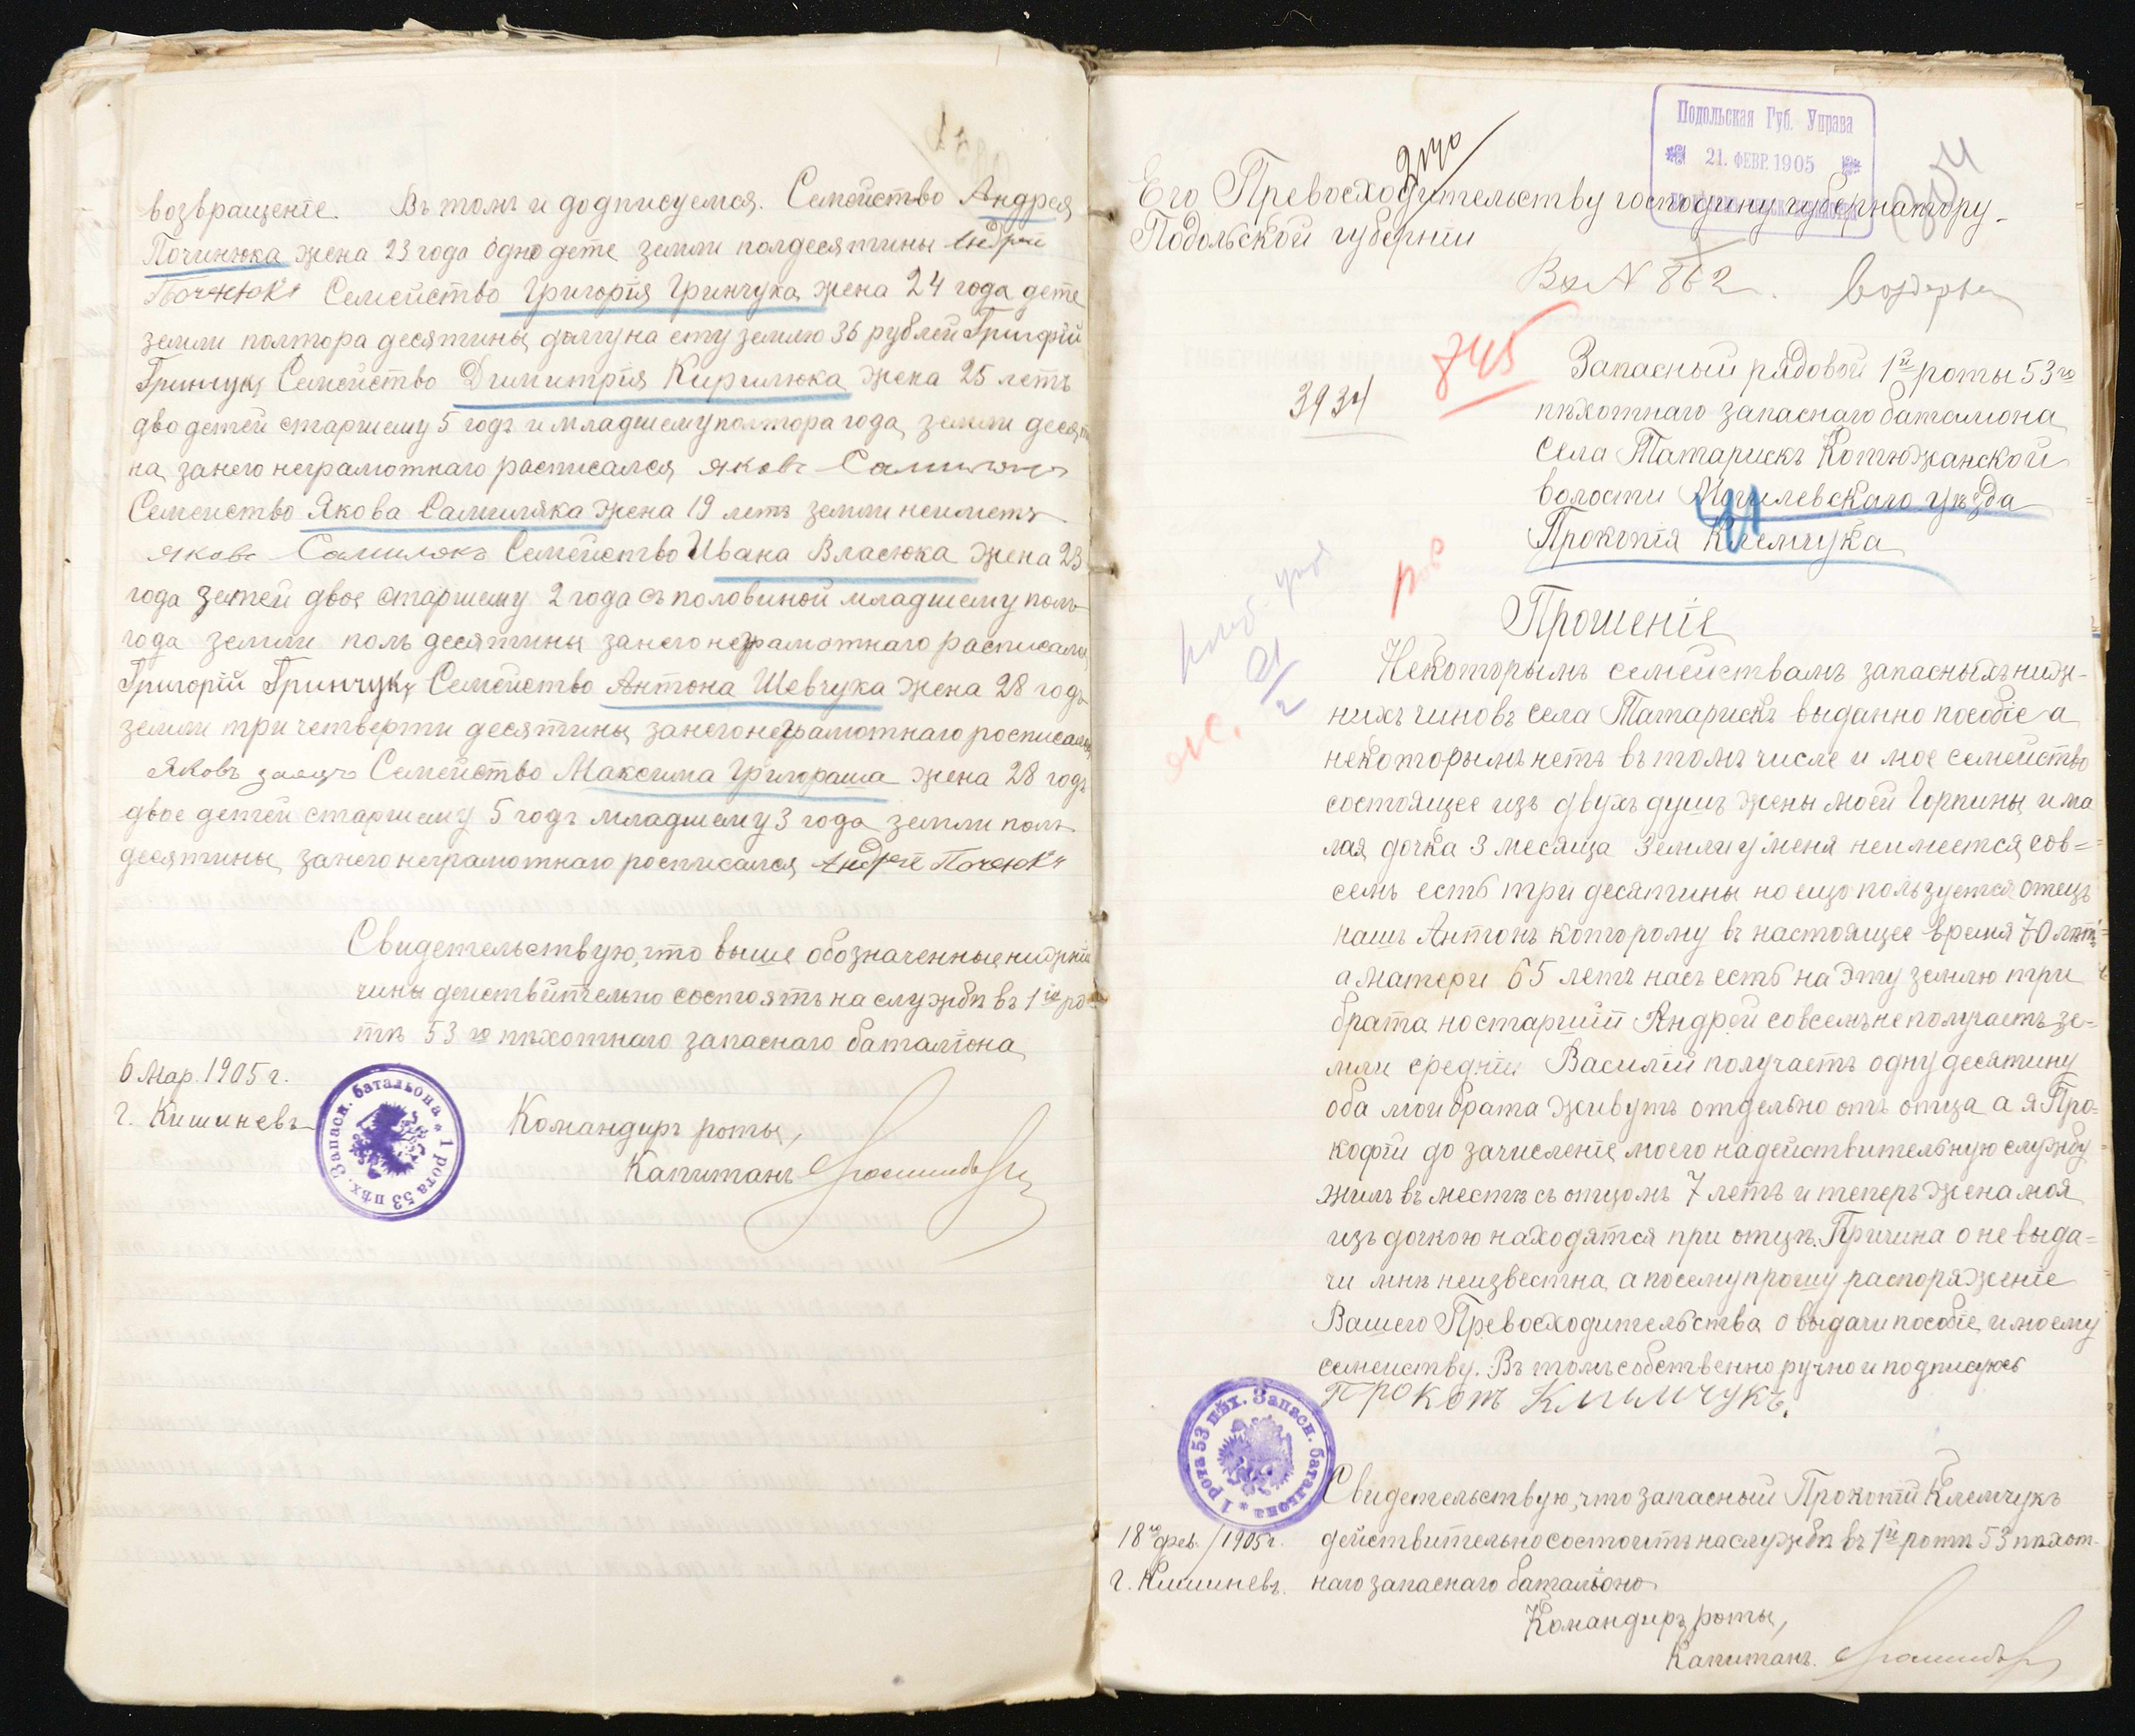 возвращеніе. Въ томъ и додписуемся. Семейство Андрея
Починюка жена 23 года одно дете земли полдесятины Андрей
Поченюкъ Семейство Григорія Гринчука жена 24 года дете
земли полтора десятины долгу на ету землю 36 рублей Григорій
Гринчукъ Семейство Димитрія Кирилюка жена 25 летъ
двo детей старшему 5 годъ и младшему полтора года земли десяти
на занего неграмотнаго расписался яковъ Самилякъ
Семейство Якова Самиляка жена 19 летъ земли неиметъ
яковъ Самилякъ Семейство Ивана Власюка жена 23
года детей двое старшему 2 года съ половиной младшему полъ
года земли полъ десятины занего неграмотнаго расписался
Григорій Гринчукъ Семейство Антона Шевчука жена 28 годъ
земли три четверти десятины занего неграмотнаго росписался
Яковъ заяцъ Семейство Максима Григораша жена 28 годъ
двое детей старшему 5 годъ младшему 3 года земли полъ
десятины занего неграмотнаго росписался Андрей Поченюкъ
Свидетельствую, что выше обозначенные нижніе
чины действительно состоятъ на службѣ въ 1й ро
тѣ 53го пѣхотнаго запаснаго баталіона
6 Мар. 1905 г.
г. Кишиневъ
Запасн. батальона * 1 рота 53 пѣх.
Командиръ роты,
Капитанъ
Подольская Губ. Управа
21. ФЕВР. 1905
Его Превосходительству господину губернатору
Подольской губерніи
Вх N 862.
745
3934
Запасный рядовой 1й роты 53го
пѣхотнаго запаснаго баталиона
села Татарискъ Котюжанской
волости Могилевскаго уѣзда
Прокопія Клемчука
Прошеніе
Некоторымъ семействамъ запасныхъ ниж-
нихъ чиновъ села Татарискъ выданно пособіе а
некоторымъ нетъ въ томъ числе и мое семейство
состоящее изъ двухъ душъ жены моей Горпины и ма
лая дочка 3 месяца Земли у меня неимеется сов=
семъ есть три десятины но ещо пользуется отецъ
нашъ Антонъ которому въ настоящее время 70 лѣтъ
а матери 65 летъ насъ есть на эту землю три
брата но старшій Андрей совсемъ не получаетъ зе=
мли средній Василій получаетъ одну десятину
оба мои брата живутъ отдельно отъ отца а я Про=
кофій до зачисленіе моего на действительную службу
жилъ въ местѣ съ отцомъ 7 летъ и теперъ жена моя
изъ дочкою находятся при отцѣ. Причина о не выда=
чи мнѣ неизвестна а посему прошу распоряженіе
Вашего Превосходительства о выдачи пособіе и моему
семейству. Въ томъ собственно ручно и подписуюсь
Прокопъ Климчукъ.
1 рота 53 пѣх. Запасн. батальона *
Свидетельствую, что запасный Прокопій Клемчукъ
18го фев. 1905 г. действительно состоитъ на службѣ въ 1й ротѣ 53 пѣхот-
г. Кишиневъ. наго запаснаго баталіона
Командиръ роты,
Капитанъ.